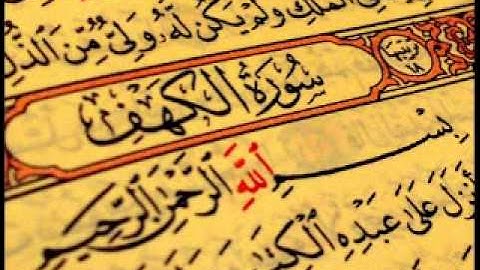 ٱلْمُلْكِ وَلَمْ يَكُن لَّهُۥ وَلِيٌّ مِّنَ ٱلذُّلِّ
سُورَةُ الكَهْفِ
بِسْمِ ٱللَّهِ ٱلرَّحْمَٰنِ ٱلرَّحِيمِ
أَنزَلَ عَلَىٰ عَبْدِهِ ٱلْكِتَٰبَ